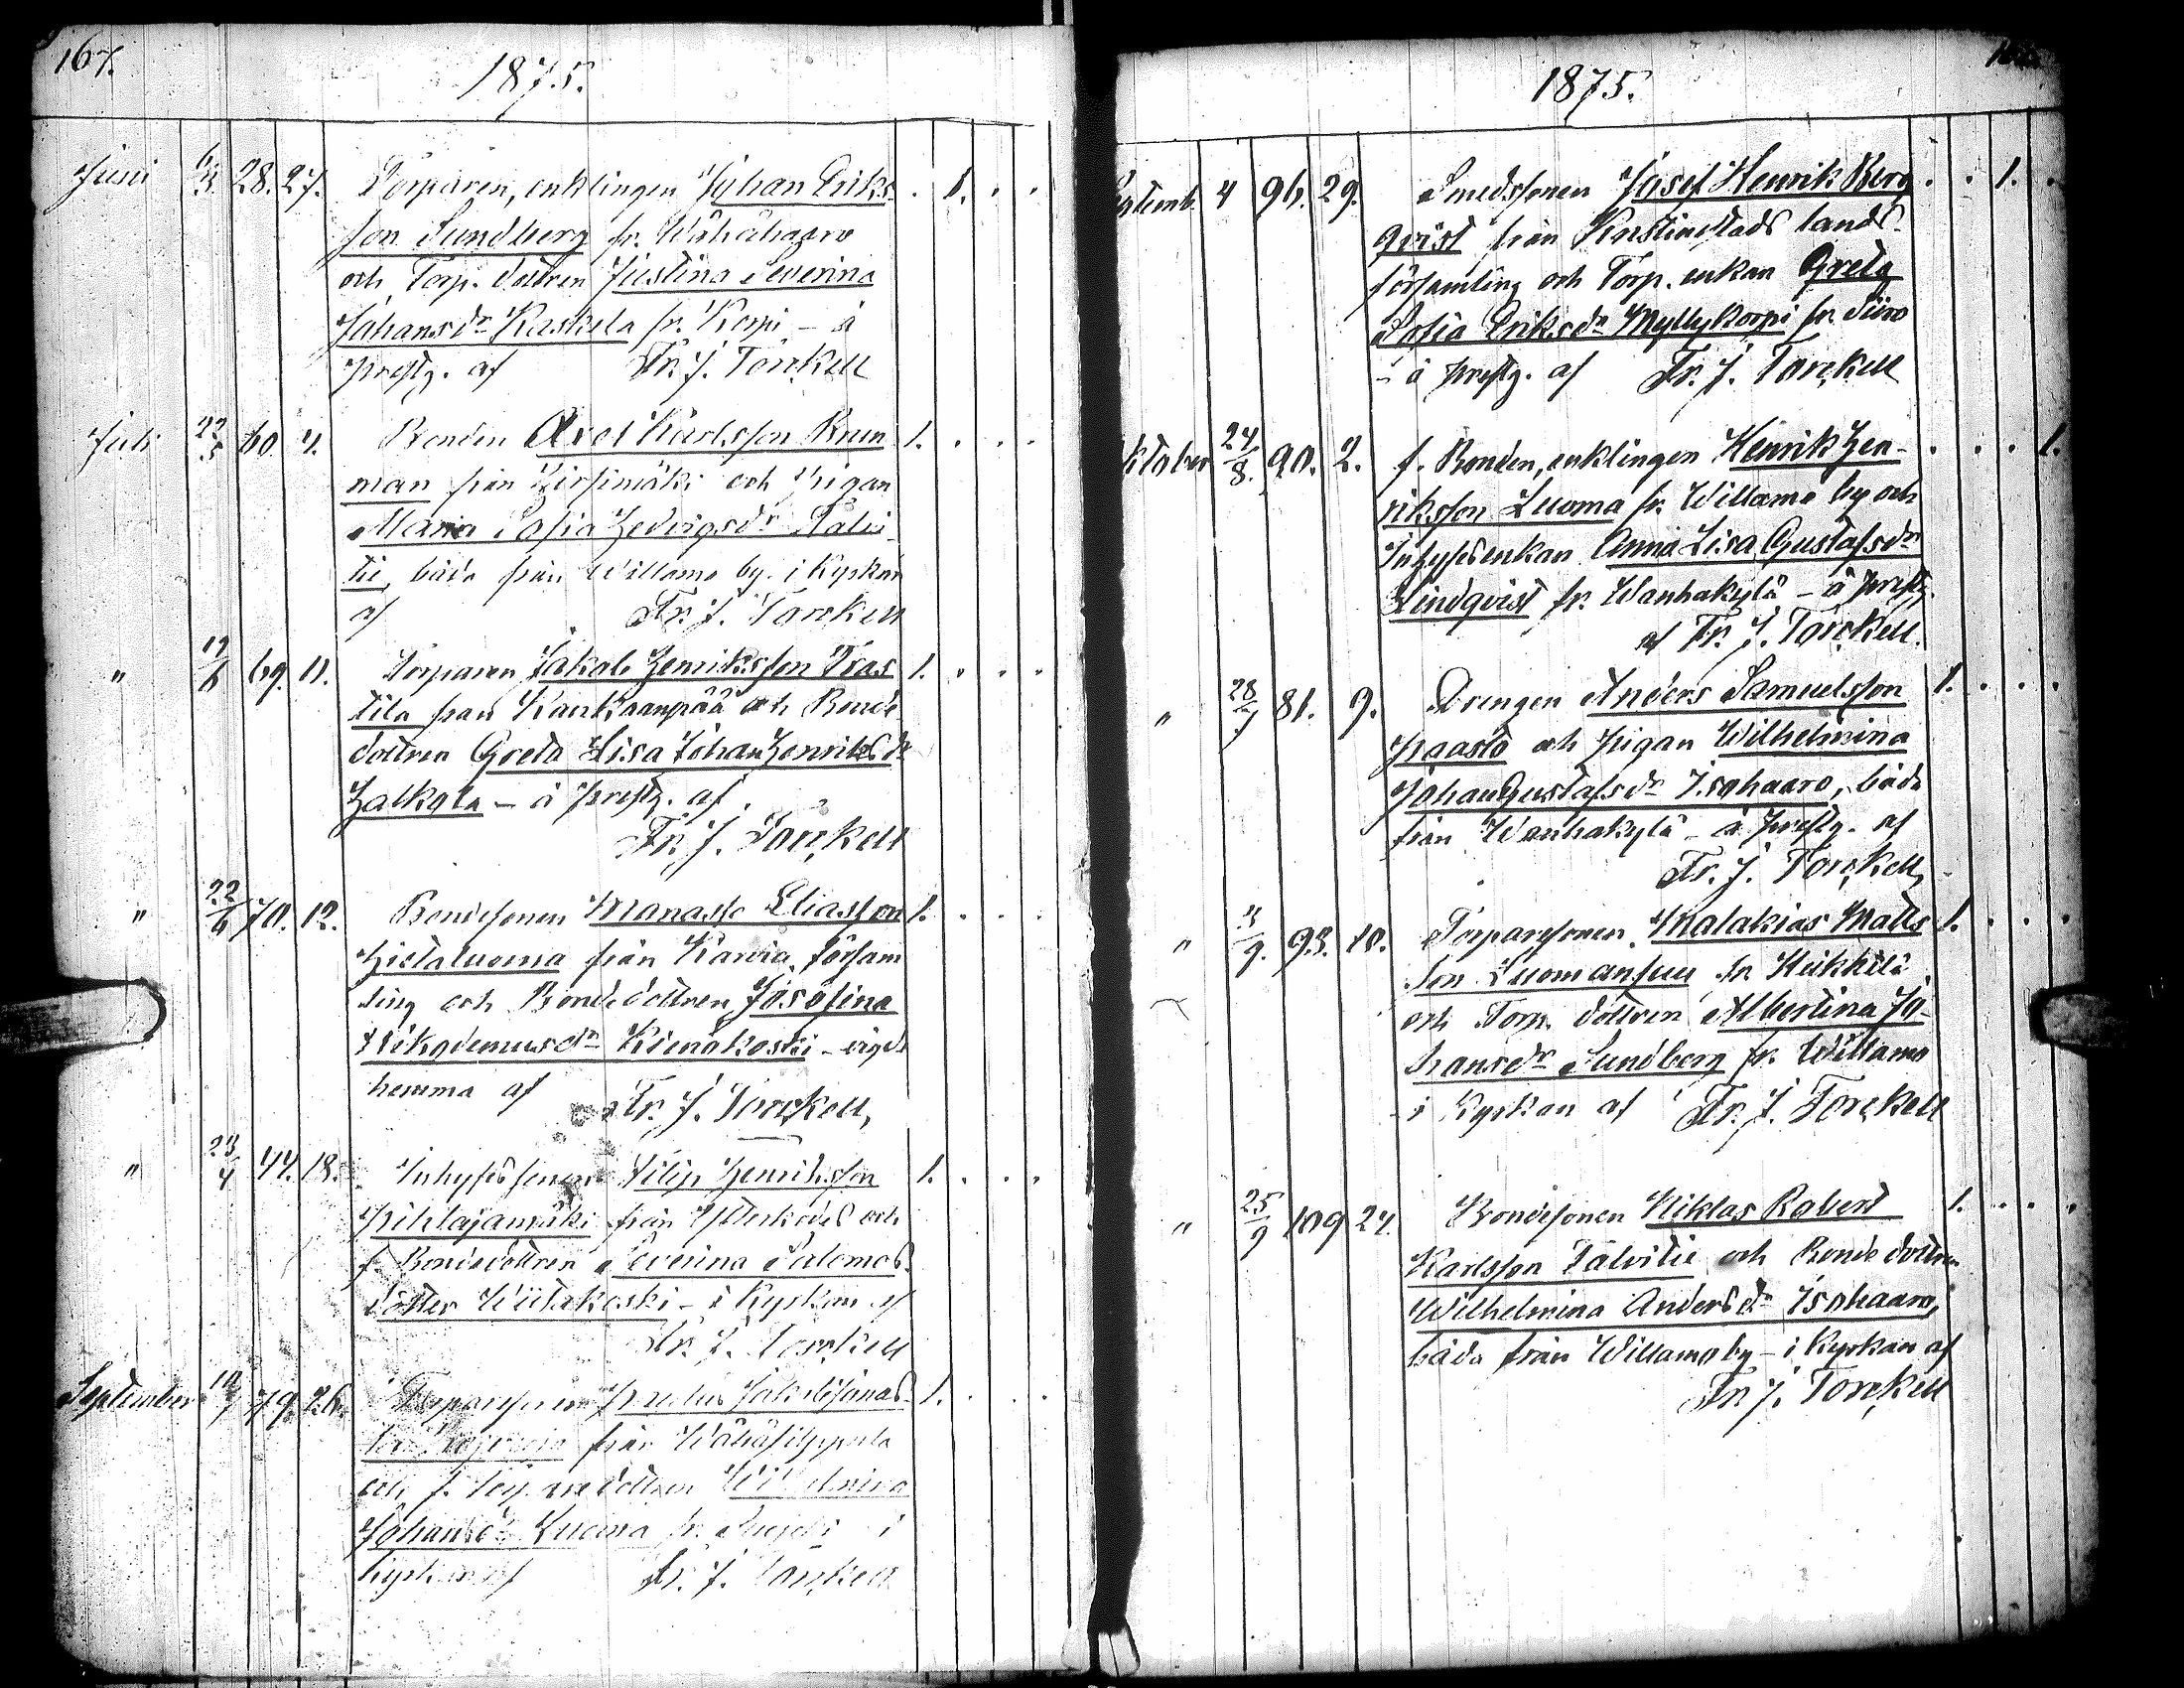 167.
1875.
Juni 6/3. 28. 27. Torparen, enklingen Johan Eriks- . 1. . .
son Sundberg fr. Wähähaaro
och Torp. dottren Justina Severina
Johansdr Kaskela fr. Korpi – å
prestg. af Fr. J. Torckell
Juli 22/5 60 4. Bonden Axel Karlsson Brun- 1. . . .
man från Hirsimäki och Pigan
Maria Sofia Hedvigsdr Talvi-
tie, båda från Willamo by. i Kyrkan
af Fr. J. Torckell
" 19/6 69. 11. Torparen Jakob Henriksson Tras- 1. . . .
tila från Kankaanpää och Bonde-
dottren Greta Lisa Johan Henriksdr
Halkola – å prestg. af
Fr. J. Torckell
" 22/6 70. 12. Bondesonen Manasse Eliasson 1. . . .
Hietaluoma från Karvia försam
ling och Bondedottren Josefina
Nikodemusdr Kienäkoski – vigde
hemma af Fr. J. Torckell,
" 23/4 44. 18. Inhyses sonen Filip Henriksson 1. . . .
Pihlajamäki från och
f. Bondedottren Severina Salomos-
dotter Wiitakoski – i Kyrkan af
Fr. J. Torckell
September 10/7 79. 26. Torparesonen Jakob Jonas- 1. . . .
son från Wähäfilppula
och f. Torparedottren Wilhelmina
Johansdr Luoma fr. i
Kyrkan af Fr. J. Torckell
1875.
Septemb. 4 96. 29. Smedssonen Josef Henrik Berg . . 1. .
qvist från Kristinestads lands-
församling och Torp. enkan Greta
Sofia Eriksdr Myllykorpi fr. Siiro
– å prestg. af Fr. J. Torckell
Oktober 24/8. 90. 2. f. Bonden, enklingen Henrik Hen- . . . 1.
riksson Luoma fr. Willamo by och
Inhysesenkan Anna Lisa Gustafsdr
Lindqvist fr. Wanhakylä – å prestg.
af Fr. J. Torckell.
" 28/7 81. 9. Drengen Anders Samuelsson 1. . . .
Paasto och Pigan Wilhelmina
Johan Gustafsdr Isohaaro, båda
från Wanhakylä – å prestg. af
Fr. J. Torckell,
" 4/9. 93. 10. Torparesonen Malakias Matts- 1. . . .
son Luomansuu fr. Heikkilä
och Torp. dottren Albertina Jo-
hansdr Sundberg fr. Willamo
i Kyrkan af Fr. J. Torckell
" 25/9 109 24. Bondesonen Niklas Robert 1. . . .
Karlsson Talvitie och Bonde dottren
Wilhelmina Andersdr Isohaaro,
båda från Willamo by – i Kyrkan af
Fr. J. Torckell